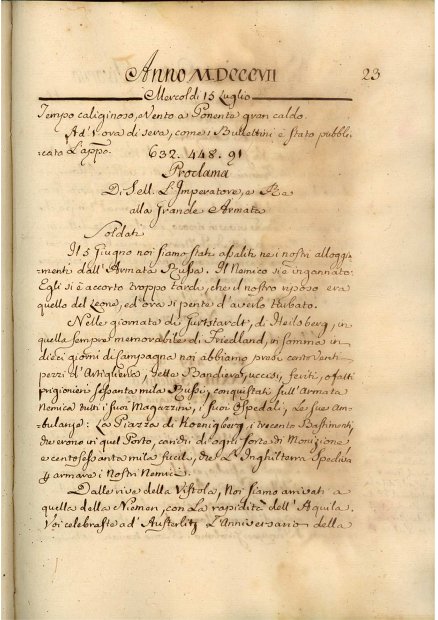 Anno MDCCCVII
23
Mercoldi 15 Luglio
Tempo caliginoso, Vento a Ponente gran caldo.
Ad' 1 ora di sera, come i Bullettini è stato pubbli-
cato L'appo.
632. 448. 91
Proclama
Di S.ell. L'Imperatore, e Re
alla Grande Armata
Soldati
Il 5 Giugno noi siamo stati assaliti ne i nostri alloggi-
menti dall'Armata Russa. Il Nemico si è ingannato:
Egli si è accorto troppo tardi, che il nostro riposo era
quello del Leone, ed'ora si pente d'averlo turbato.
Nelle giornate di Gurtstardt, di Heilsberg, in
quella sempre memorabile di Friedland, in somma in
dieci giorni di campagna noi abbiamo presi cento venti
pezzi d'Artiglieria, sette Bandiere, uccisi, feriti, o fatti
prigionieri sessanta mila Russi, conquistati sull'Armata
Nemica tutti i suoi Magazzini, i suoi Ospedali, le sue am-
bulanze: La Piazza di Koenigberg, i trecento Bastimenti,
che erano in quel Porto, carichi di ogni sorte di Monizione
e cento sessanta mila fucili, che L'Inghilterra spediva
p armare i nostri Nemici.
Dalle rive della Vistola, noi siamo arrivati a
quella della Niemen, con La rapidità dell'Aquila.
Voi celebraste ad'Austerlitz L'Anniversario della